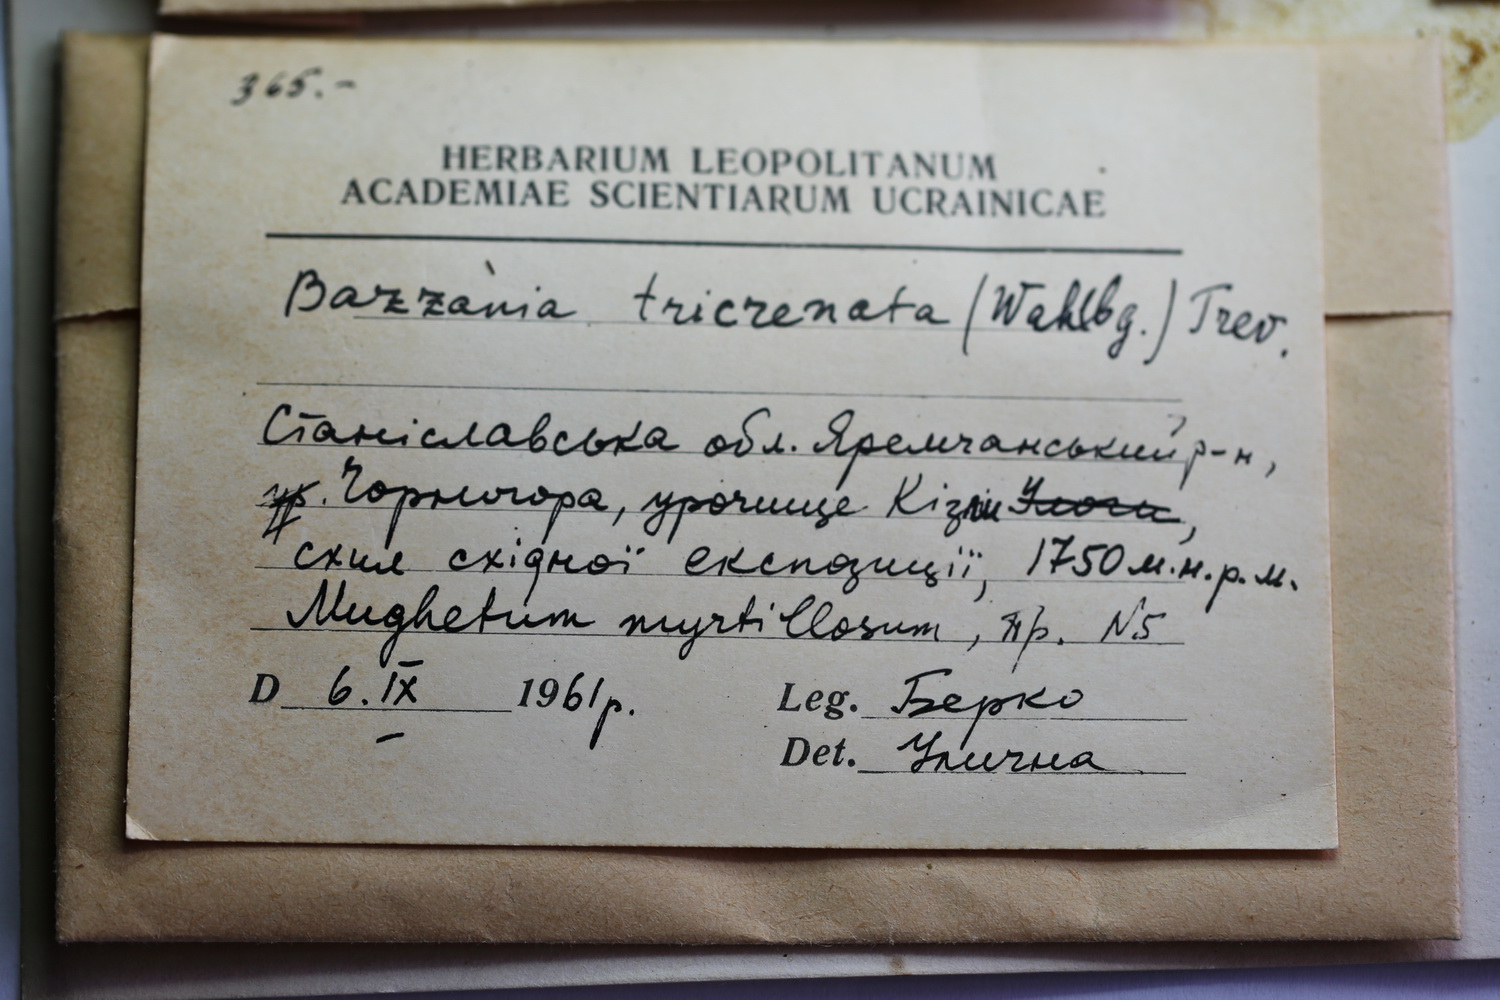 365.-
HERBARIUM LEOPOLITANUM
ACADEMIAE SCIENTIARUM UCRAINICAE
Bazzània tricrenata (Wahlbg.) Trev.
Станіславська обл. Яремчанський р-н,
Чорногора, урочище Кізли,
схил східної експозиції, 1750 м.н.р.м.
Mughetum myrtillosum, пр. N5
D 6.IX 1961р.
Leg. Берко
Det. Улична